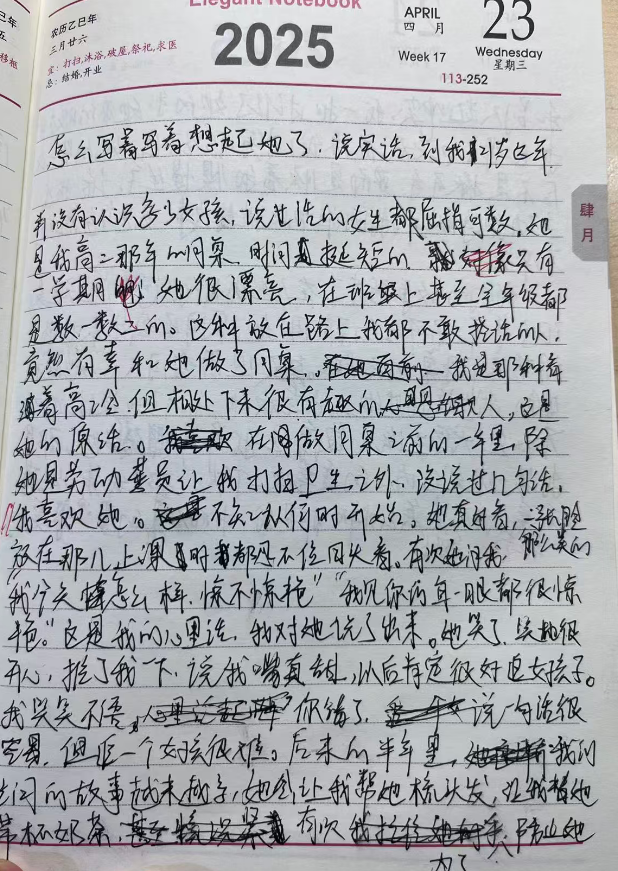 Elegant Notebook
农历乙巳年
三月廿六
宜:打扫,沐浴,破屋,祭祀,求医
忌:结婚,开业
2025
APRIL
四 月
Week 17
23
Wednesday
星期三
113-252
肆
月
怎么写着写着想起她了。说实话,到我21岁这年
并没有认识多少女孩,说过话的女生都屈指可数。她
是我高二那年的同桌,时间挺短的,好像只有
一学期。她很漂亮,在班级上甚至全年级都
是数一数二的。这种放在路上我都不敢搭话的人,
竟然有幸和她做了同桌。我是那种看
着高冷但相处下来很有趣的人,这是
她的原话。在做同桌之前的一年里,除
她是劳动委员让我打扫卫生之外,没说过几句话。
我喜欢她。不知从何时开始。她真好看,
放在那儿上课时都忍不住回头看。有次她问我
那么美的
我今天怎么样,惊不惊艳""我见你的每一眼都很惊
艳。"这是我的心里话,我对她说了出来。她笑了,笑地很
开心,推了我一下,说我嘴真甜,以后肯定很好追女孩子。
我哭笑不语。你错了,说一句话很
容易,但追一个女孩很难。后来的半年里,我们
之间的故事越来越多,她会让我帮她梳头发,让我给她
带杯奶茶,有次